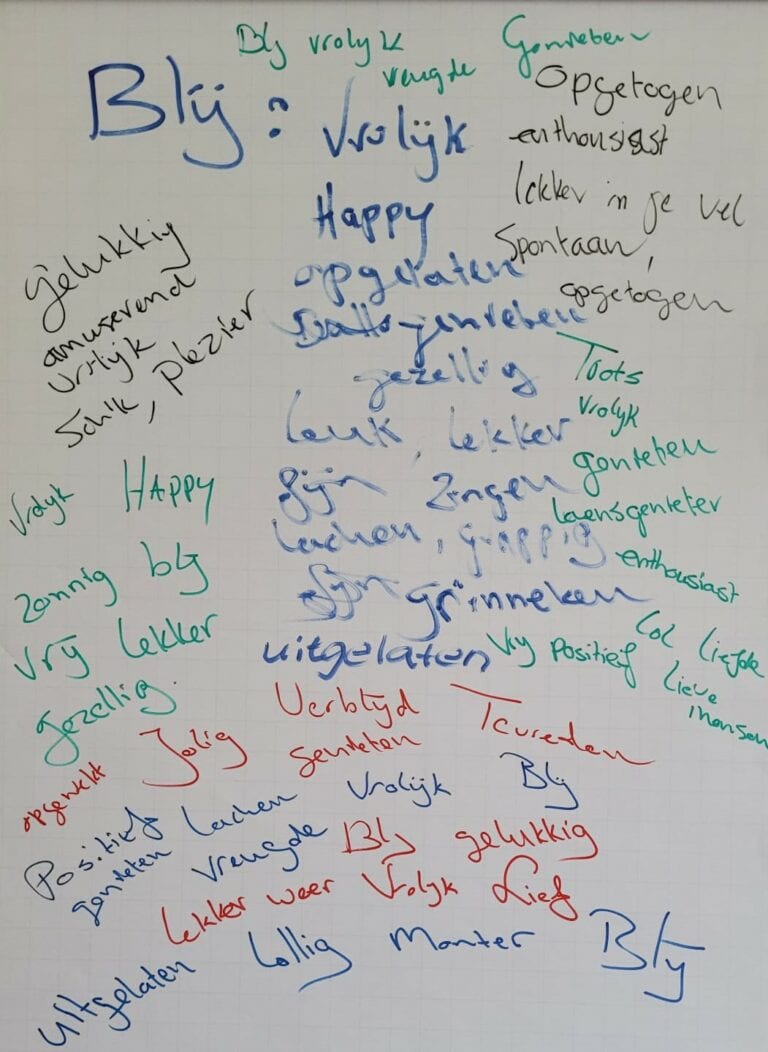 Blij vrolijk
vreugde
Genieten
Blij : Vrolijk
Opgetogen
enthousiast
lekker in je vel
Spontaan,
opgetogen
Happy
opgelaten
genieten
gezellig
leuk, lekker
fijn zingen
lachen, grappig
fijn grinneken
uitgelaten
gelukkig
amuserend
vrolijk
Schik, plezier
Toots
Vrolijk
genieten
enthousiast
Vrolijk HAPPY
zonnig blij
vrij lekker
gezellig.
Vrij positief
Lol liefde
Lieve
mensen
Verblijd Tevreden
Jolig genieten
opgewekt
Positief lachen Vrolijk Blij
genieten vreugde
Blij gelukkig
Lekker weer Vrolijk Lief
uitgelaten Lollig Monter Blij